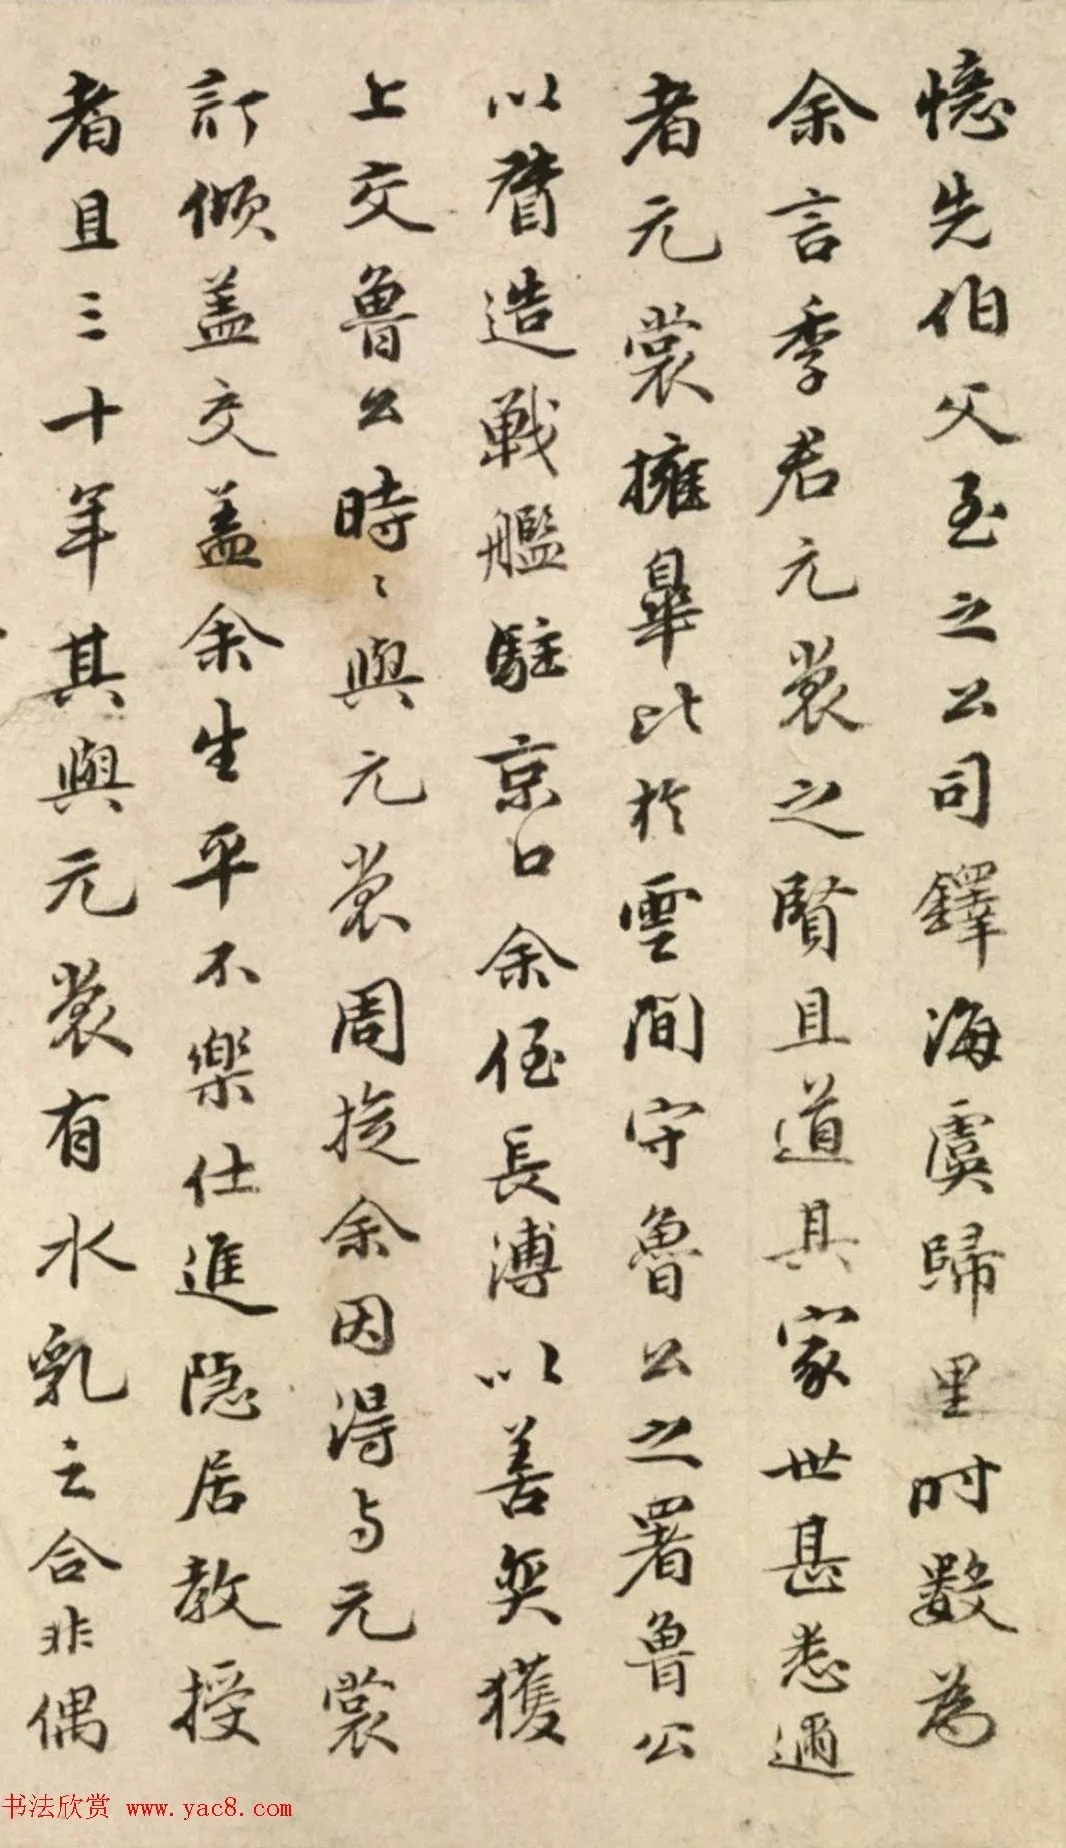 憶先伯父至之公司鐸海虞歸里时數為
余言季君元裳之賢且道其家世甚悉邇
者元裳擁皋比於雲間守魯公之署魯公
以督造戰艦駐京口余侄長溥以善奕獲
上交魯公時〻與元裳周旋余因得与元裳
訂傾盖交盖余生平不樂仕進隐居教授
者且三十年其與元裳有水乳之合非偶
书法欣赏 www.yac8.com